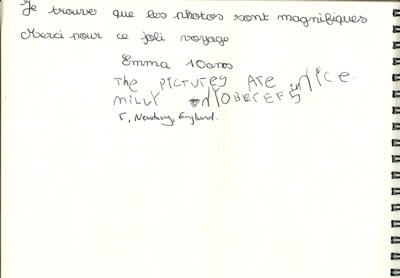 Je trouve que les photos sont magnifiques
Merci pour ce joli voyage
Emma 10 ans
The PICTUREs ARE NICE.
MILLY
5, Newbury, England.